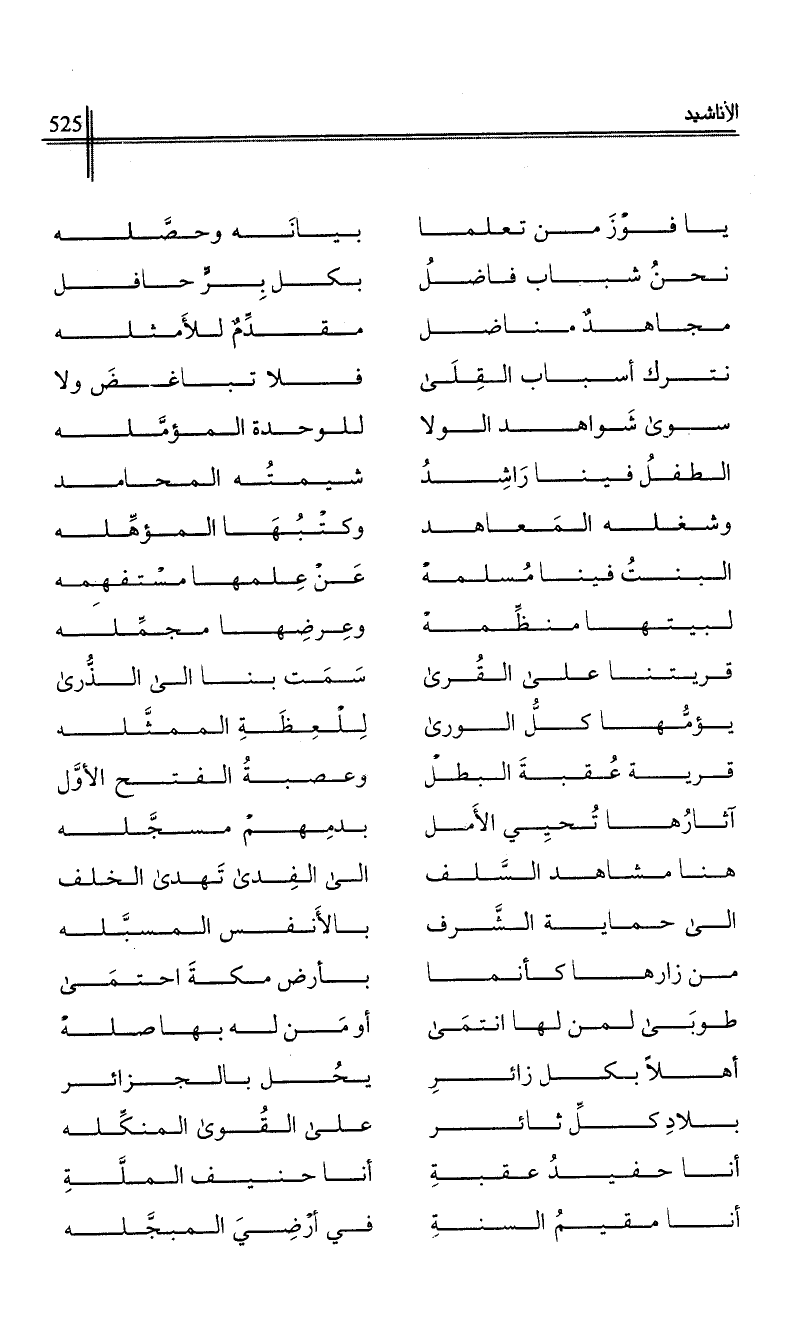 الأناشيد 525
يا فوْزَ من تعلما بيانَه وحصَّله
نحنُ شباب فاضلُ بكل بِرٍّ حافل
مجاهدٌ مناضل مقدِّمٌ للأمثله
نترك أسباب القِلَىٰ فلا تباغضَ ولا
سوىٰ شَواهد الولا للوحدة المؤمَّله
الطفلُ فينا رَاشِدُ شيمتُه المحامد
وشغله المَعاهد وكتْبُهَا المؤهِّله
البنتُ فينا مُسلمهْ عَنْ عِلمها مسْتفهِمه
لبيتها منظِّمهْ وعِرضِها مجمِّله
قريتنا علىٰ القُرىٰ سَمَت بنا الىٰ الذُّرىٰ
يؤمُّها كلُّ الورىٰ لِلْعِظَةِ الممثَّله
قرية عُقبةَ البطلْ وعصبةُ الفتح الأوَّل
آثارُها تُحيِي الأمل بدمِهمْ مسجَّله
هنا مشاهد السَّلف الىٰ الفِدىٰ تَهدىٰ الخلف
الىٰ حماية الشَّرف بالأَنفس المسبَّله
من زارها كأنما بأرض مكةَ احتمَىٰ
طوبَىٰ لمن لها انتمَىٰ أو مَن له بها صلهْ
أهلاً بكل زائرِ يحُل بالجزائر
بلادِ كلِّ ثائر علىٰ القُوىٰ المنكِّله
أنا حفيدُ عقبةِ أنا حنيف الملَّةِ
أنا مقيمُ السنةِ في أرْضِيَ المبجَّله